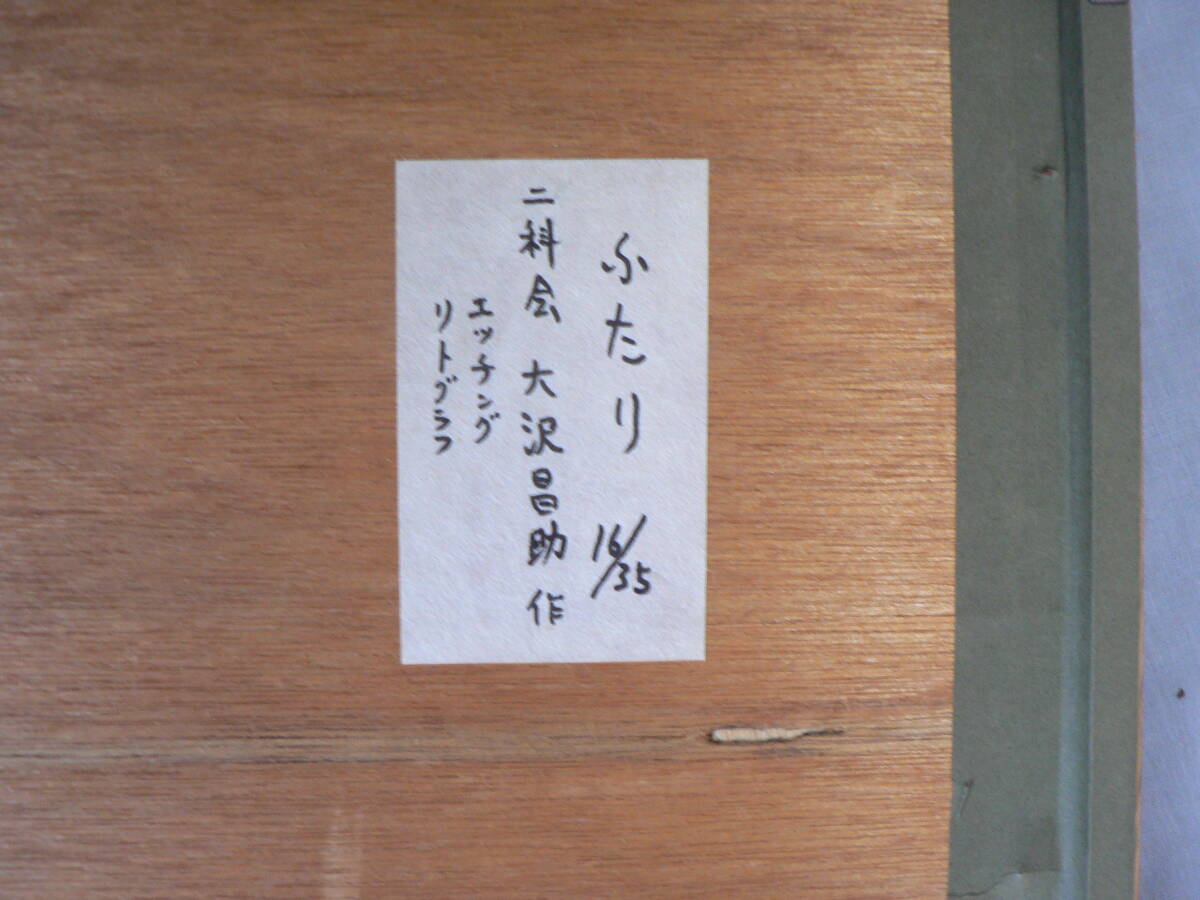 ふたり 16/35
二科会 大沢昌助 作
エッチング
リトグラフ